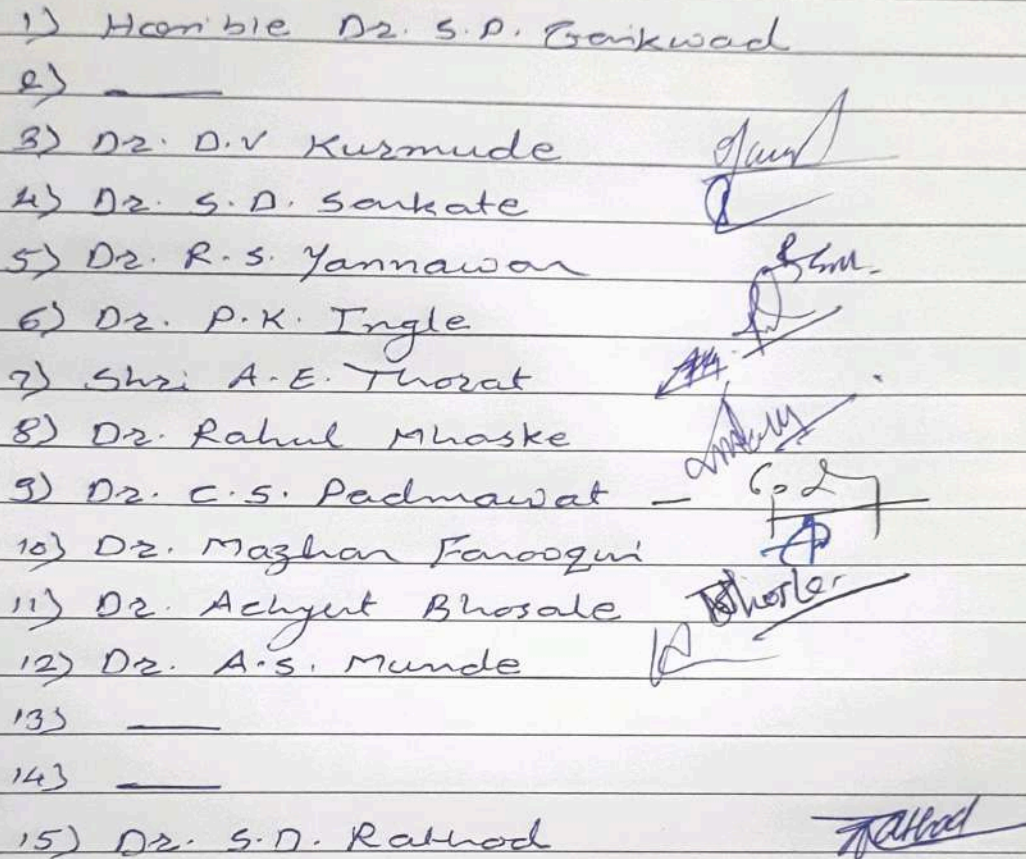 1) Hon'ble Dr. S.D. Gaikwad
2) —
3) Dr. D.V Kurmude
4) Dr. S.D. Sankate
5) Dr. R.S. Yannawar
6) Dr. P.K. Ingle
7) Shri A.E. Thorat
8) Dr. Rahul Mhaske
9) Dr. C.S. Padmawat —
10) Dr. Mazhar Farooqui
11) Dr. Achyut Bhosale
12) Dr. A.S. Munde
13) —
14) —
15) Dr. S.D. Rathod Rathod